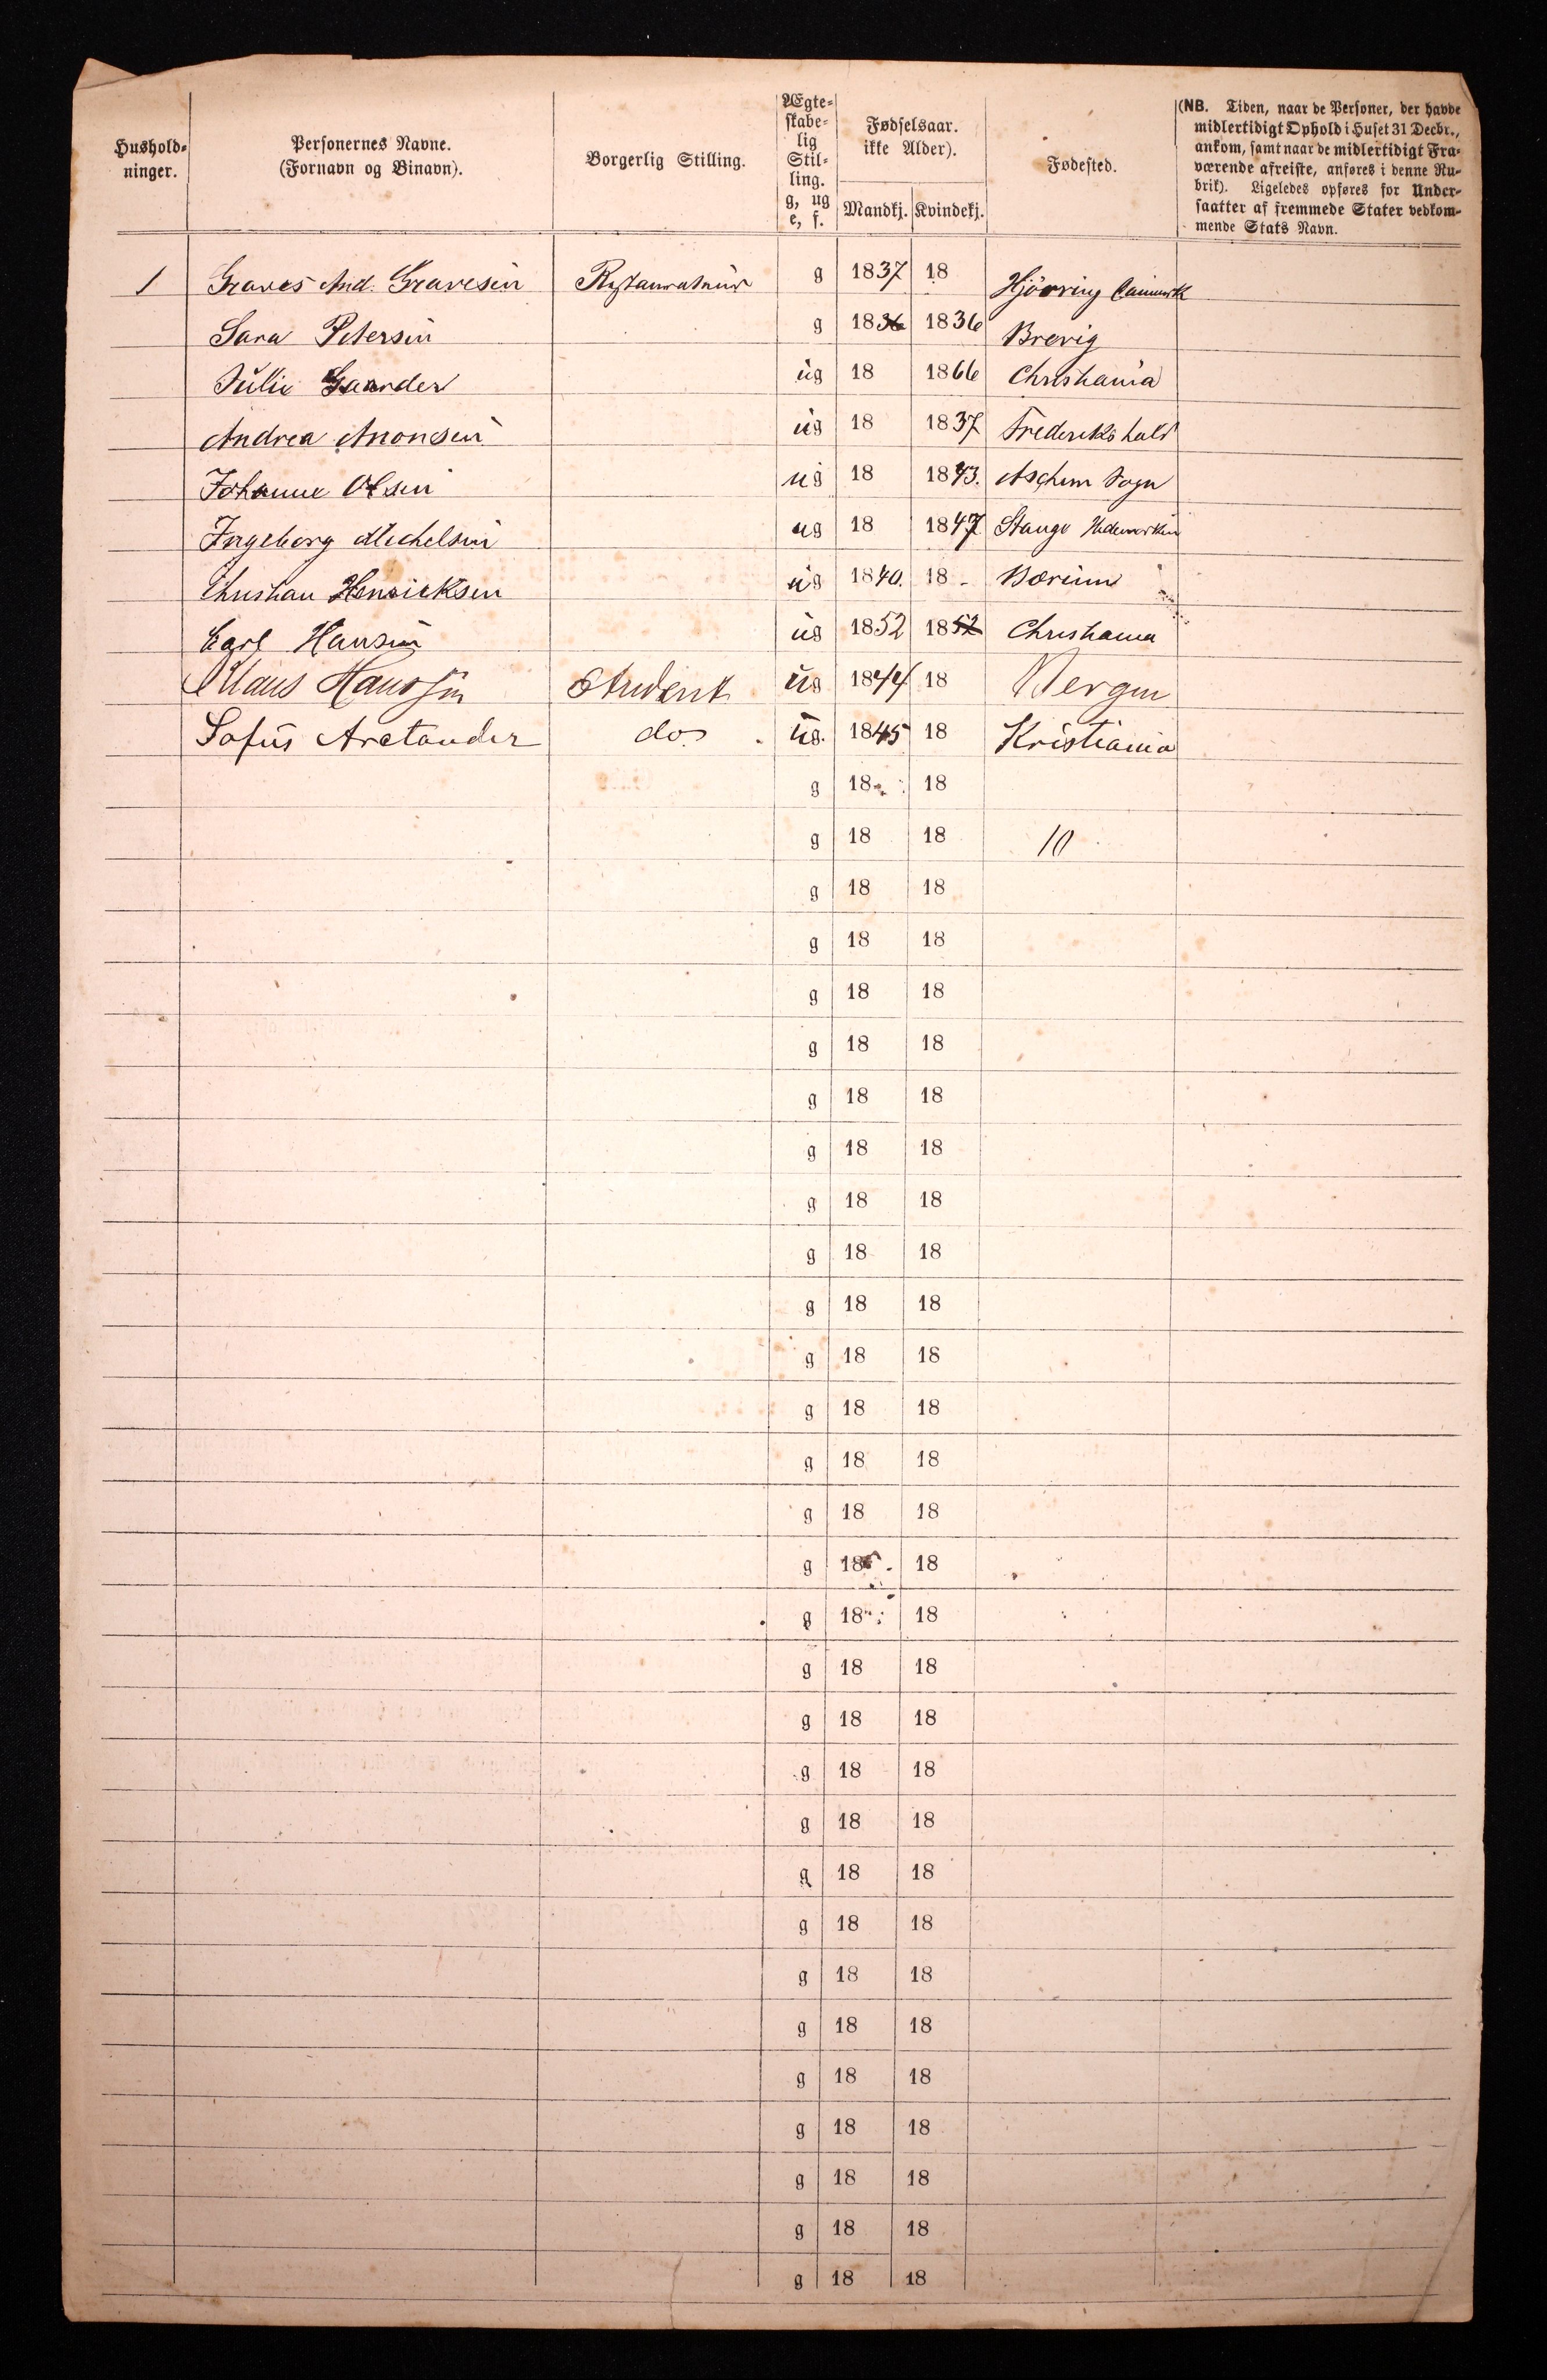 Hushold-
ninger.
Personernes Navne.
(Fornavn og Binavn).
Borgerlig Stilling.
Ægte-
skabe-
lig
Stil-
ling.
g, ug
e, f.
Fødselsaar.
ikke Alder).
Mandkj. Kvindekj.
Fødested.
(NB. Tiden, naar de Personer, der havde
midlertidigt Ophold i Huset 31 Decbr.,
ankom, samt naar de midlertidigt Fra-
værende afreiste, anføres i denne Ru-
brik). Ligeledes opføres for Under-
saatter af fremmede Stater vedkom-
mende Stats Navn.
1 Graves And. Gravesen Restaurateur g 1837 18 Hjörring Danmark
Sara Petersen g 1836 1836 Brevig
Julie Gaarder ug 18 1866 Christiania
Andrea Aronesen ug 18 1837 Frederikshald
Johanne Olsen ug 18 1843. Aschim Sogn
Ingeborg Michelsen ug 18 1847 Stange Hedemarken
Christian Henricksen ug 1840. 18 - Bærum
Carl Hansen ug 1852 1852 Christiania
Klaus Hanssen Student ug 1844 18 Bergen
Sofus Arctander do. ug. 1845 18 Kristiania
g 18 18
g 18 18 10
g 18 18
g 18 18
g 18 18
g 18 18
g 18 18
g 18 18
g 18 18
g 18 18
g 18 18
g 18 18
g 18 18
g 18 18
g 18 18
g 18 18
g 18 18
g 18 18
g 18 18
g 18 18
g 18 18
g 18 18
g 18 18
g 18 18
g 18 18
g 18 18
g 18 18
g 18 18
g 18 18
g 18 18